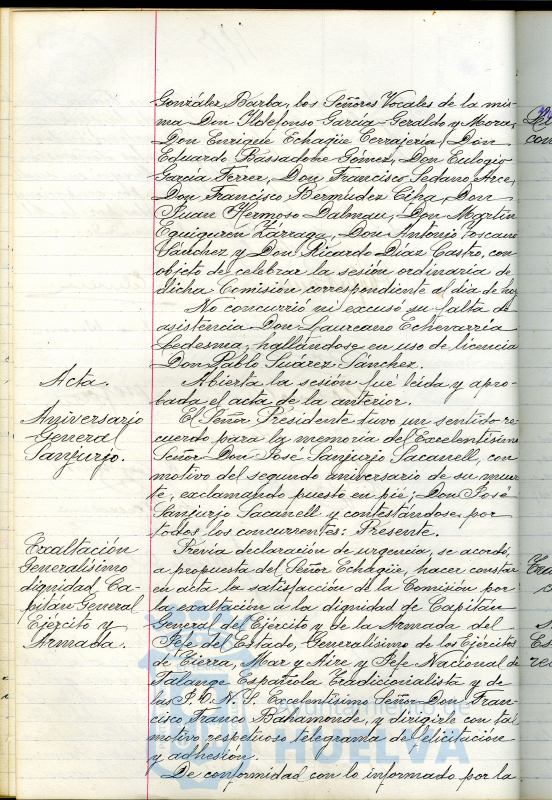 González Barba, los Señores Vocales de la mis-
ma Don Ildefonso García-Geraldo y Mora,
Don Enrique Echagüe Cerrajería, Don
Eduardo Bassadone Gómez, Don Eulogio
García Ferrer, Don Francisco Sedano Arce,
Don Francisco Bermúdez Ciha, Don
Juan Hermoso Dalmau, Don Martín
Eguiguren Zárraga, Don Antonio Toscano
Sánchez y Don Ricardo Díaz Castro, con
objeto de celebrar la sesión ordinaria de
dicha Comisión correspondiente al día de hoy
No concurrió ni excusó su falta de
asistencia Don Laureano Echevarría
Ledesma, hallándose en uso de licencia
Don Pablo Suárez Sánchez.
Acta.
Abierta la sesión fué leida y apro-
bada el acta de la anterior.
Aniversario
General
Sanjurjo.
El Señor Presidente tuvo un sentido re-
cuerdo para la memoria del Excelentísimo
Señor Don José Sanjurjo Sacanell, con
motivo del segundo aniversario de su muer-
te, exclamando puesto en pié; Don José
Sanjurjo Sacanell y contestándose por
todos los concurrentes: Presente.
Exaltación
Generalísimo
dignidad Ca-
pitán General
Ejército y
Armada.
Previa declaración de urgencia, se acordó,
a propuesta del Señor Echagüe, hacer constar
en acta la satisfacción de la Comisión por
la exaltación a la dignidad de Capitán
General del Ejército y de la Armada del
Jefe del Estado, Generalísimo de los Ejércitos
de Tierra, Mar y Aire y Jefe Nacional de
Falange Española Tradicionalista y de
las J.O.N.S. Excelentísimo Señor Don Fran-
cisco Franco Bahamonde, y dirigirle con tal
motivo respetuoso telegrama de felicitación
y adhesión.
De conformidad con lo informado por la
Ayuntamiento de
HUELVA